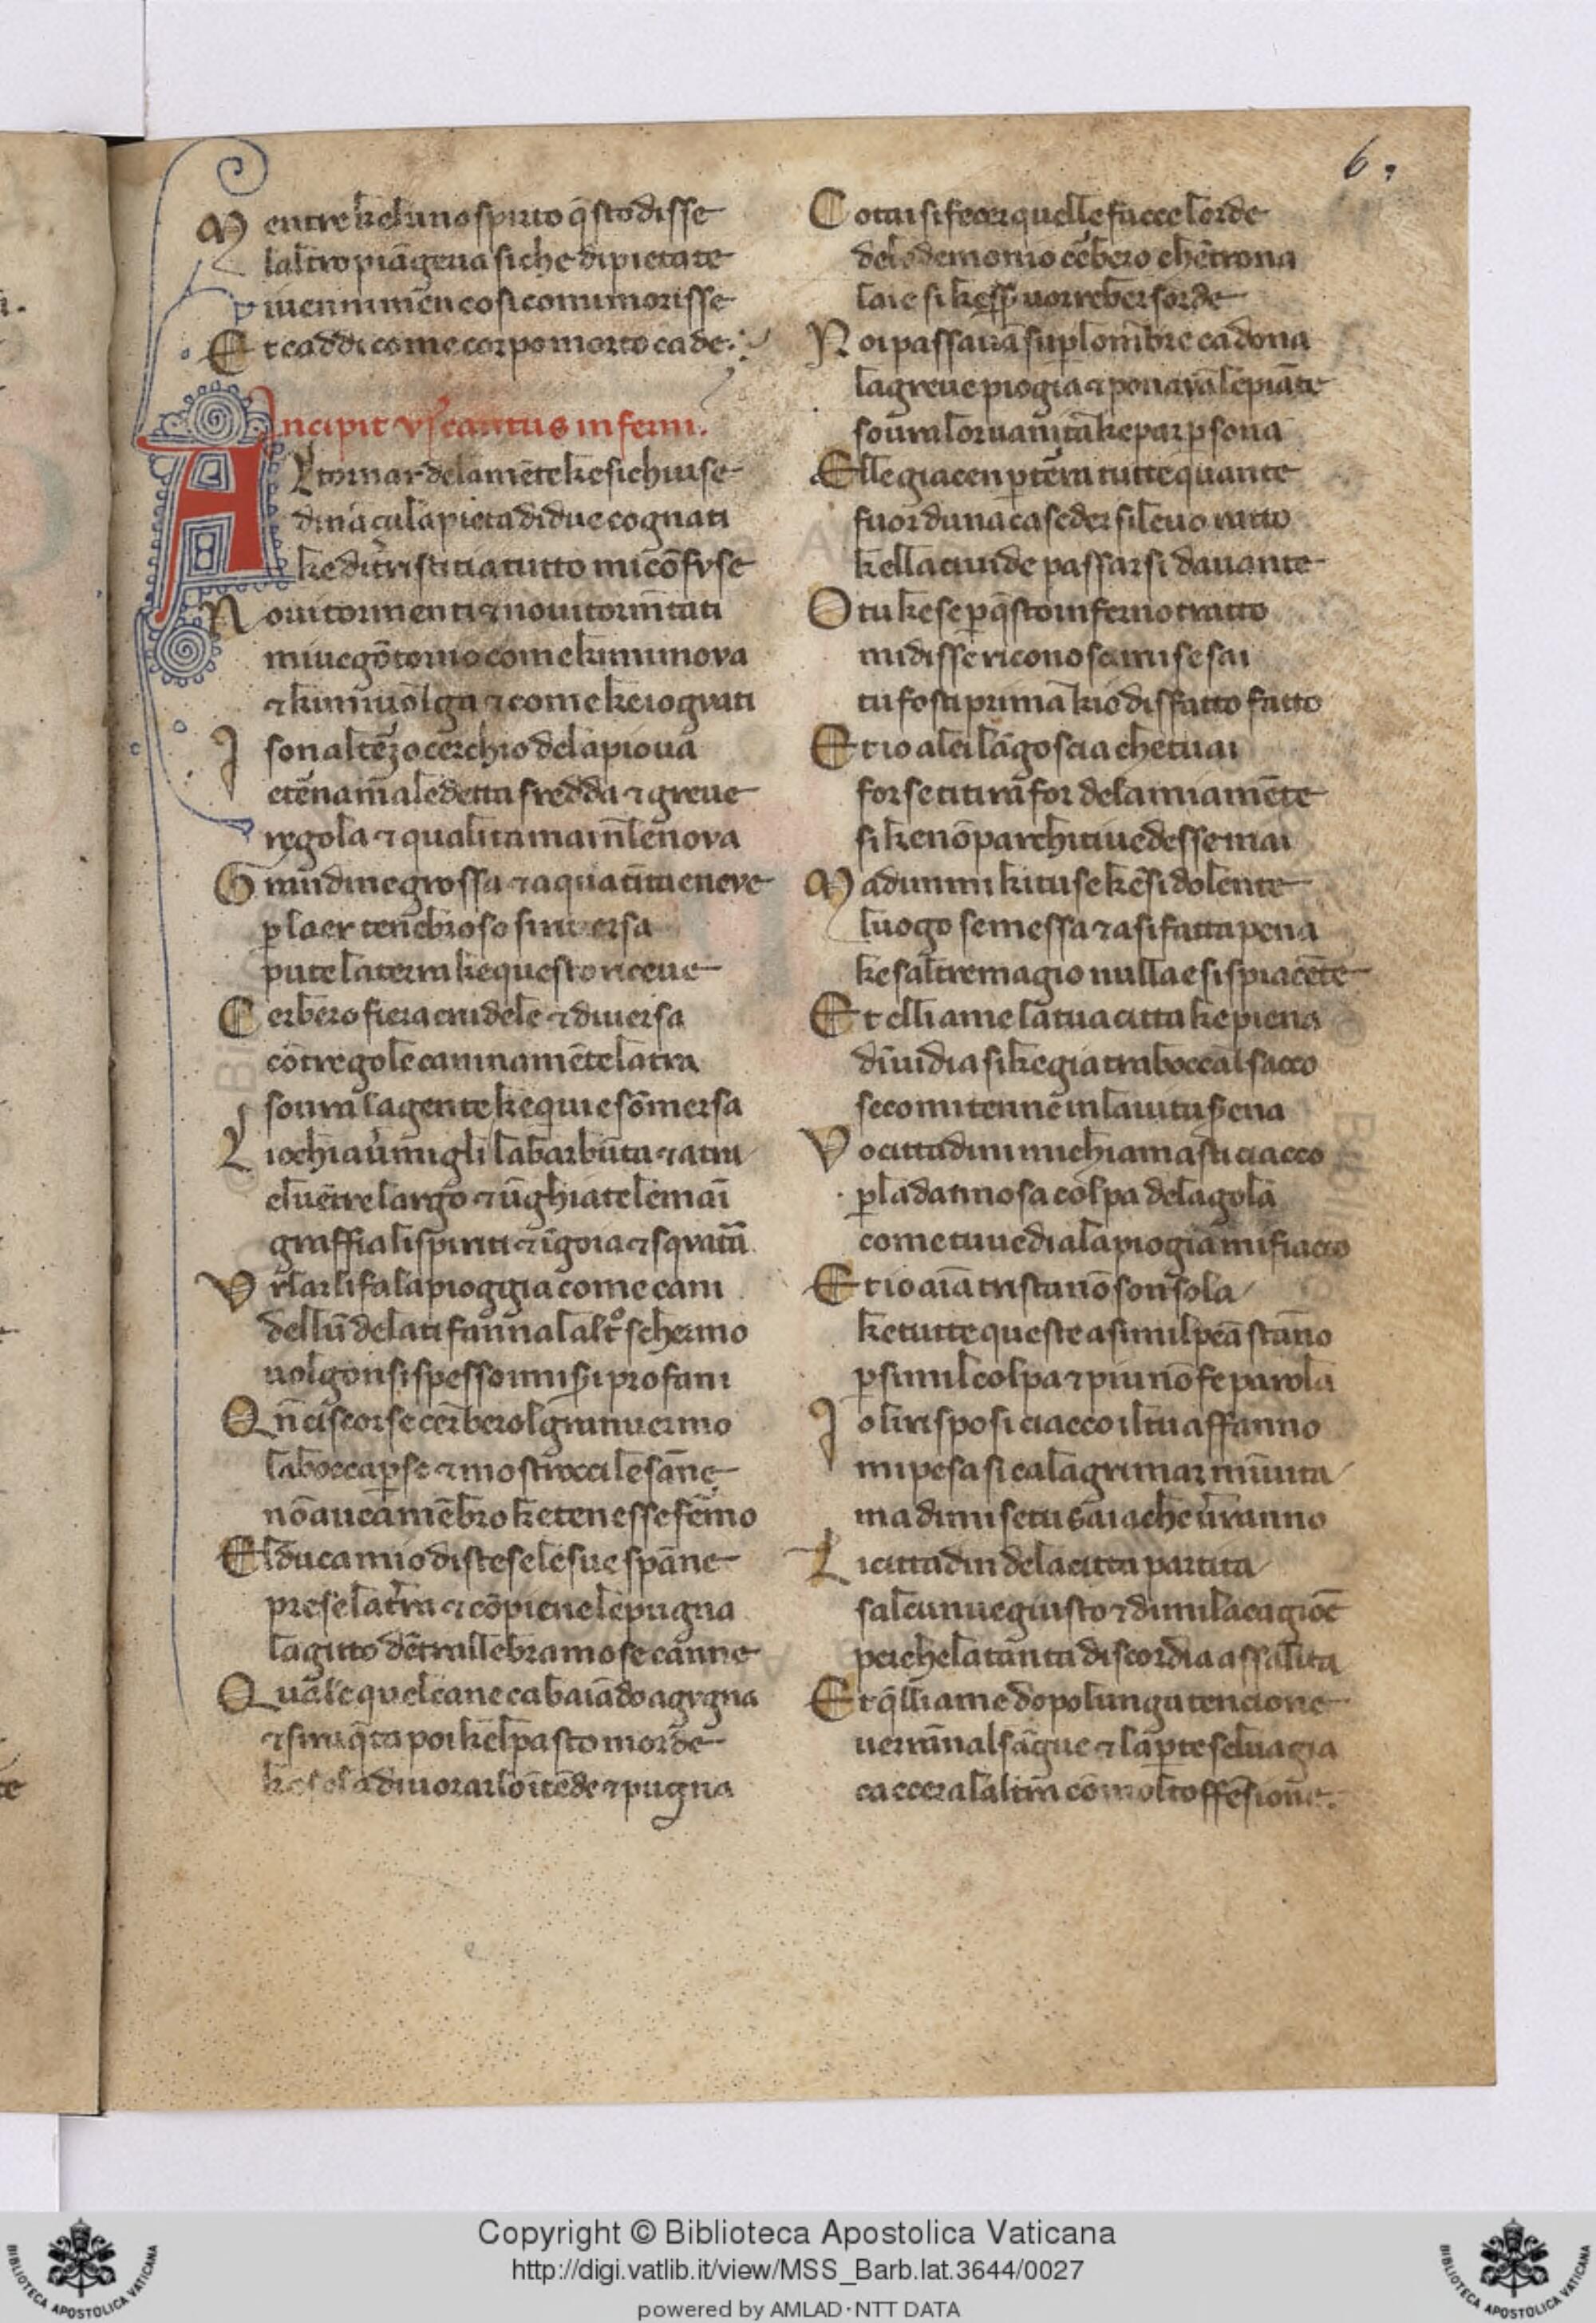 6.
M entre keluno spirito q̄sto disse
laltro piāgeua siche di pietate
iuenni mē cosi comi morisse
E t caddi come corpo morto cade.
Incipit vjͭ cantus inferni.
A Ltornar dela mēte ke si chiuse
dināçi la pieta di due cognati
ke di tristitia tutto mi cōfvse
N oui tormenti ⁊ noui tormētati
mi uegō tomo come ki mi mova
⁊ ki mi uolga ⁊ come ke io gvati
I son al terzo cerchio dela pioua
eterna maledetta fredda ⁊ greue
regola ⁊ qualita mai nle nova
G randine grossa ⁊ aqua tinta e neve
p laer tenebroso si riversa
pute la terra ke questo riceue
C erbero fiera crudele ⁊ diuersa
cō tre gole caninamēte latra
soura la gente ke qui e sōmersa
L i ochi a uermigli la barba unta ⁊ atra
el uētre largo ⁊ ūghiate le mani
graffia li spiriti ⁊ īgoia ⁊ sqvatra
V rlar li fa la pioggia come cani
dellū de lati fanno alaltͦ schermo
uolgonsi spesso i miseri profani
Q n̄ ci scorse cerbero l gran vermo
la bocca pse ⁊ mostrocci le sāne
nō auea mēbro ke tenesse fermo
E l duca mio distese le sue spāne
prese la terra ⁊ cō piene le pugna
la gitto dētr alle bramose canne
Q uale quel cane cabaiādo agvgna
⁊ si raq̄ta poi kel pasto morde
ke solo a diuorarlo ītēde ⁊ pugna
C otai si fecer quelle facce lorde
delo demonio cerbero che ītrona
laie si kesser uorreber sorde
N oi passauā su p lombre ca dona
la greue piogia ⁊ ponavā le piāte
soura lor uanita ke par psona
E lle giacen p terra tutte quante
fuor duna ca seder si leuo ratto
kella ci uide passarsi dauante
O tu ke se p q̄sto inferno tratto
mi disse riconoscimi se sai
tu fosti prima kio disfatto fatto
E t io a lei lāgoscia che tu ai
forse ti tira for dela mia mēte
si ke nō par chi ti uedesse mai
M a dimmi ki tu se ke si dolente
luogo se messa ⁊ a si fatta pena
ke saltre magio nulla e si spiacēte
E t elli a me la tua citta ke piena
dīuidia si ke gia trabocca l sacco
seco mi tenne in la uita serena
V o cittadini mi chiamasti ciacco
p la dannosa colpa dela gola
come tu uedi ala piogia mi fiacco
E t io aīa trista nō son sola
ke tutte queste a simil pena stāno
p simil colpa ⁊ piu nō fe parola
I o li risposi ciacco il tu affanno
mi pesa si ca lagrimar mīuita
ma dimi se tu sai a che uerranno
L i cittadin dela citta partita
salcun ue giusto ⁊ dimi la cagione
per che la tanta discordia assalita
E t q̄lli a me dopo lunga tencione
uerranno al sāgue ⁊ la pte seluagia
caccera laltra cō molto ffēsione.
Copyright © Biblioteca Apostolica Vaticana
http://digi.vatlib.it/view/MSS_Barb.lat.3644/0027
powered by AMLAD·NTT DATA
BIBLIOTECA APOSTOLICA VATICANA
BIBLIOTECA APOSTOLICA VATICANA